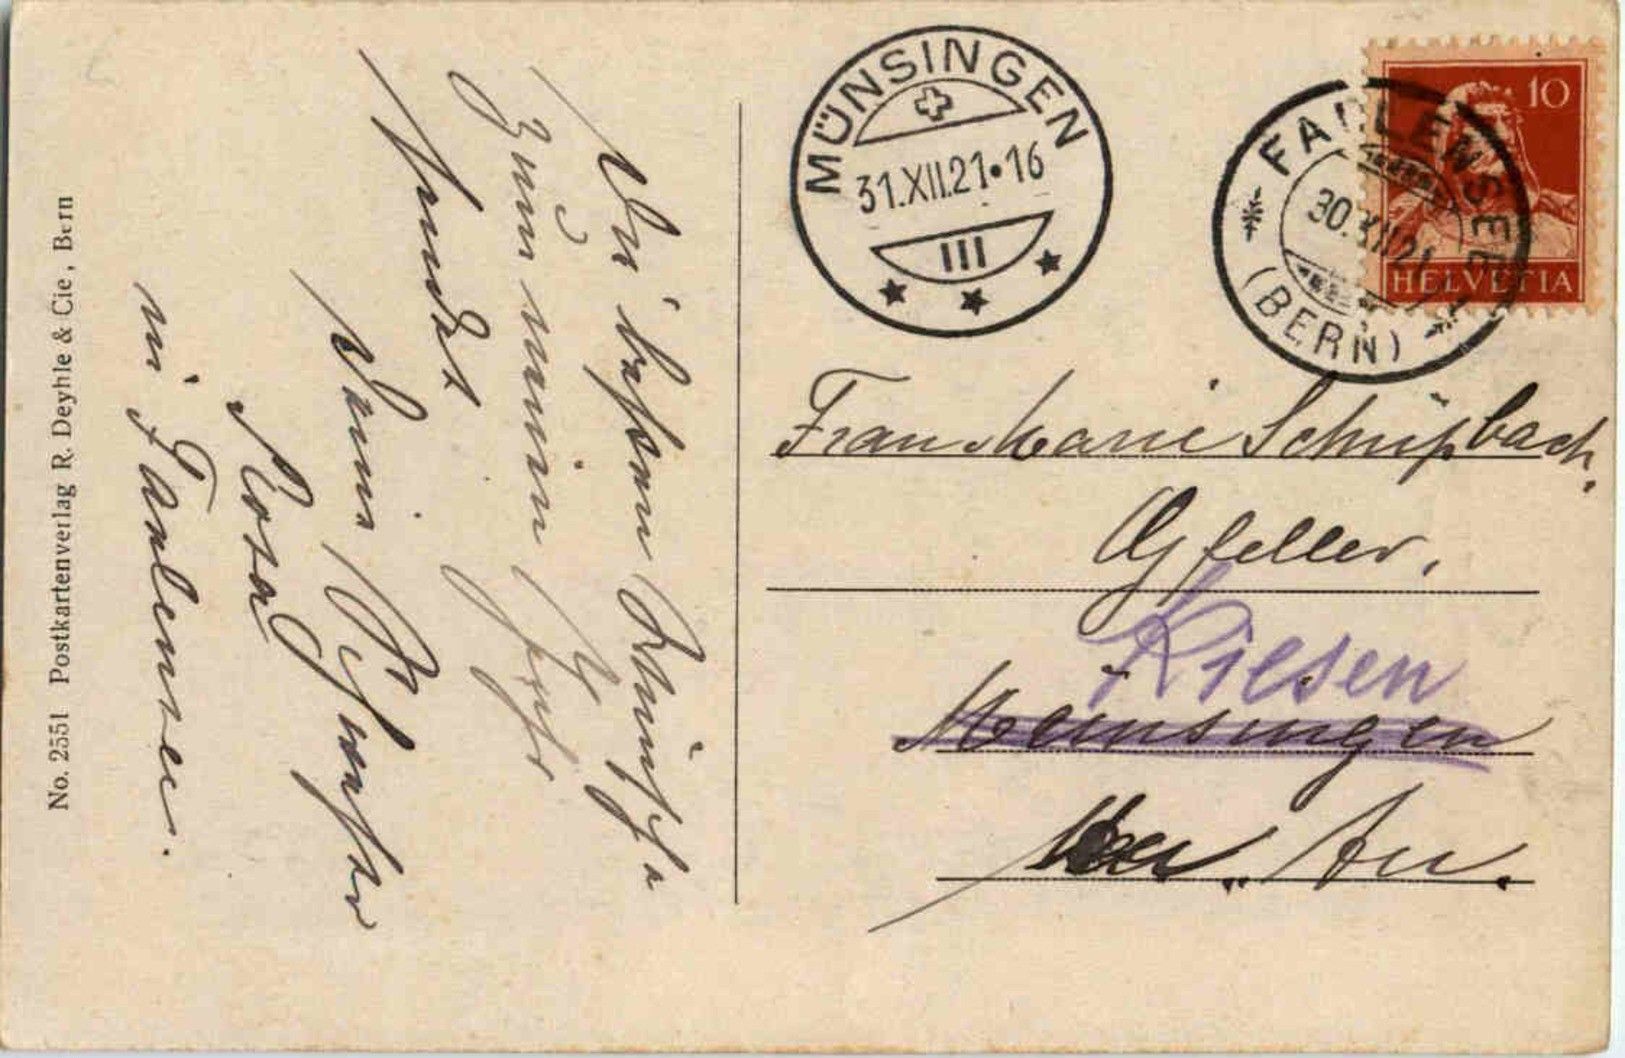 No. 2551 Postkartenverlag R. Deyhle & Cie, Bern
Die besten Wünsche
zum neuen Jahr
sendet
Deine Schwester
Rosa
in Faulensee.
MÜNSINGEN
31.XII.21•16
III
FAULENSEE
30.XII.21
(BERN)
10
HELVETIA
Frau Marie Schüpbach,
Gfeller,
Kiesen
Münsingen